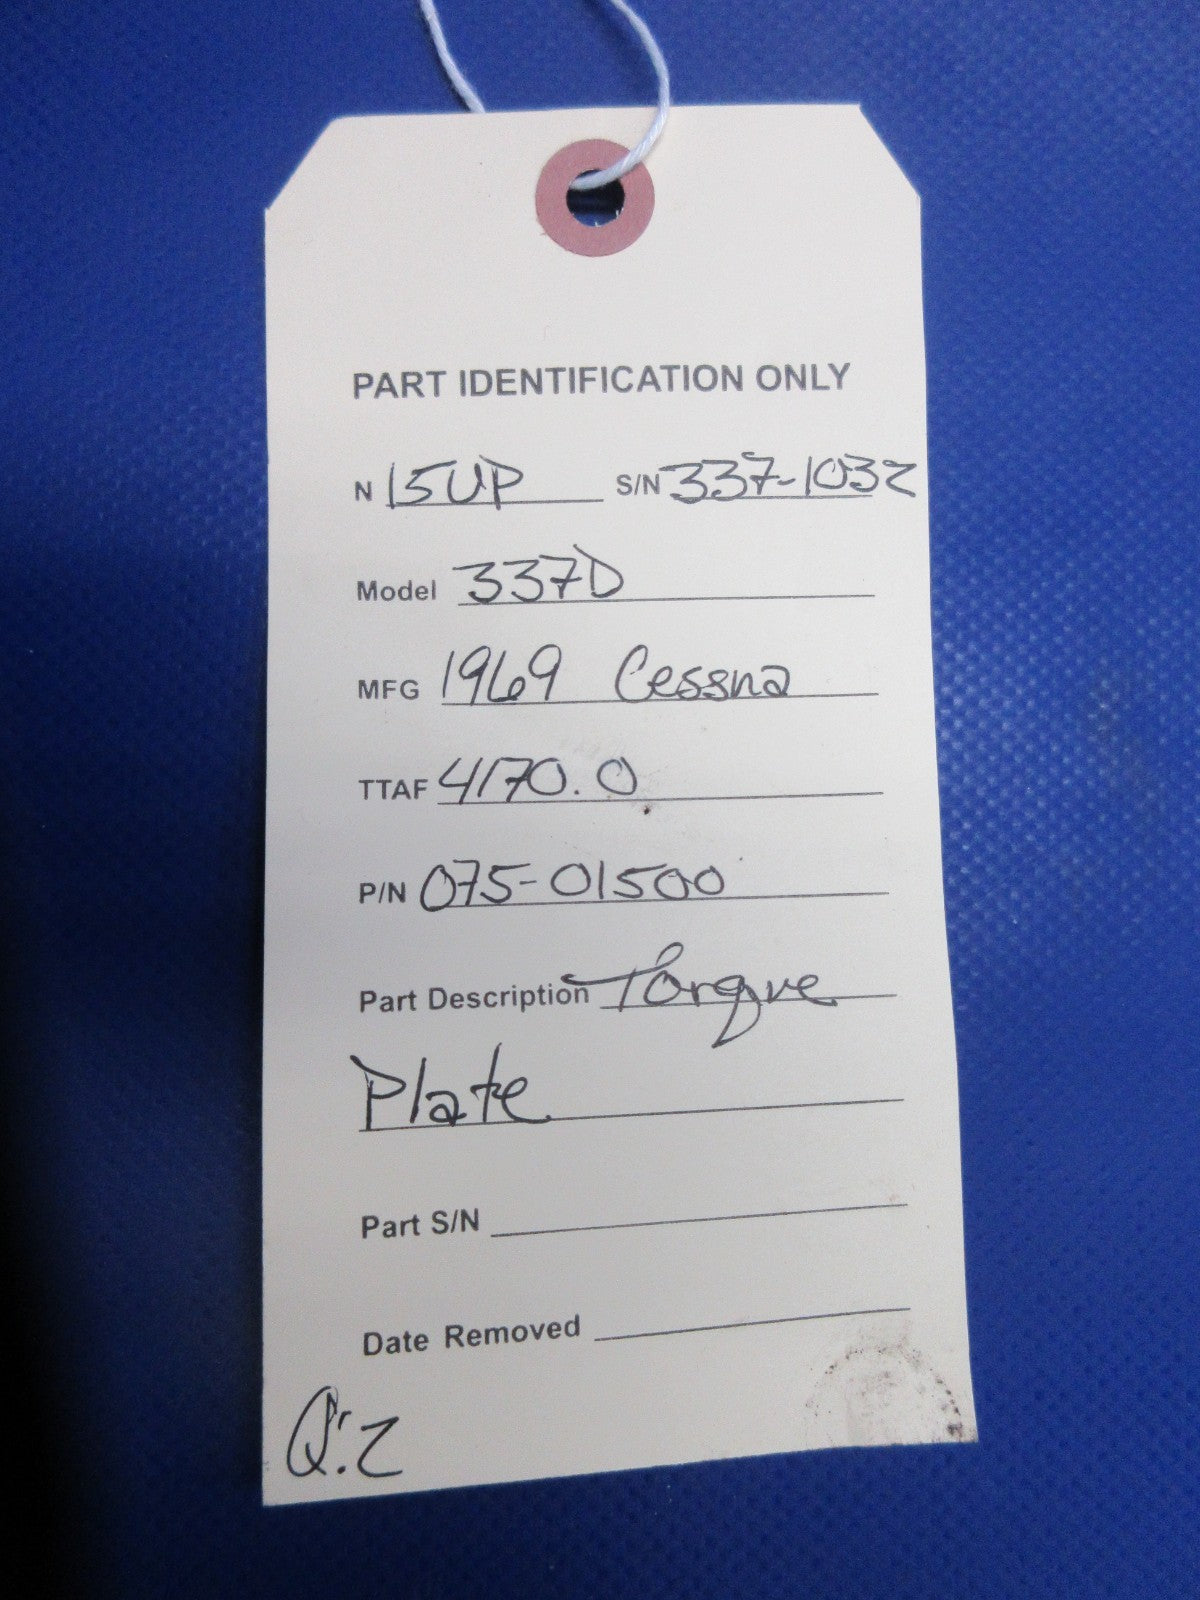 PART IDENTIFICATION ONLY
N 15UP S/N 337-1032
Model 337D
MFG 1969 Cessna
TTAF 4170.0
P/N 075-01500
Part Description Torque
Plate
Part S/N
Date Removed
Q:2